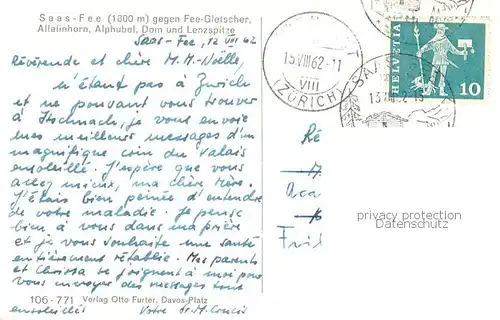 Saas-Fee (1800 m) gegen Fee-Gletscher,
Allalinhorn, Alphubel, Dom und Lenzspitze
Saas-Fee, 12 VIII 62
Révérende et chère M. M-Noëlle,
n'étant pas à Zurich
et ne pouvant vous trouver
à je vous envoie
mes meilleurs messages d'un
magnifique coin du Valais
ensoleillé. J'espère que vous
allez mieux, ma chère Mère.
J'étais bien peinée d'entendre
de votre maladie. Je pense
bien à vous dans ma prière
et je vous souhaite une santé
entièrement rétablie. Mes parents
et se joignent à moi pour
vous envoyer des messages tout
ensoleillés Votre Sr. M.
106-771 Verlag Otto Furter, Davos-Platz
15 VIII 62-11
VIII
(ZÜRICH)
SAAS
HELVETIA
10
Ré
Aca
privacy protection
Datenschutz